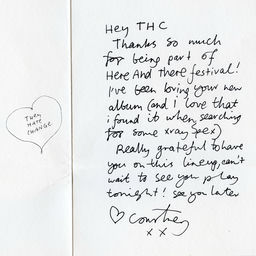 THEY
HATE
CHANGE
Hey THC
Thanks so much
for being part of
Here And There festival!
I've been loving your new
album (and I love that
i found it when searching
for some xray spex)
Really grateful to have
you on this lineup, can't
wait to see you play
tonight! see you later
♡ Courtney
x x